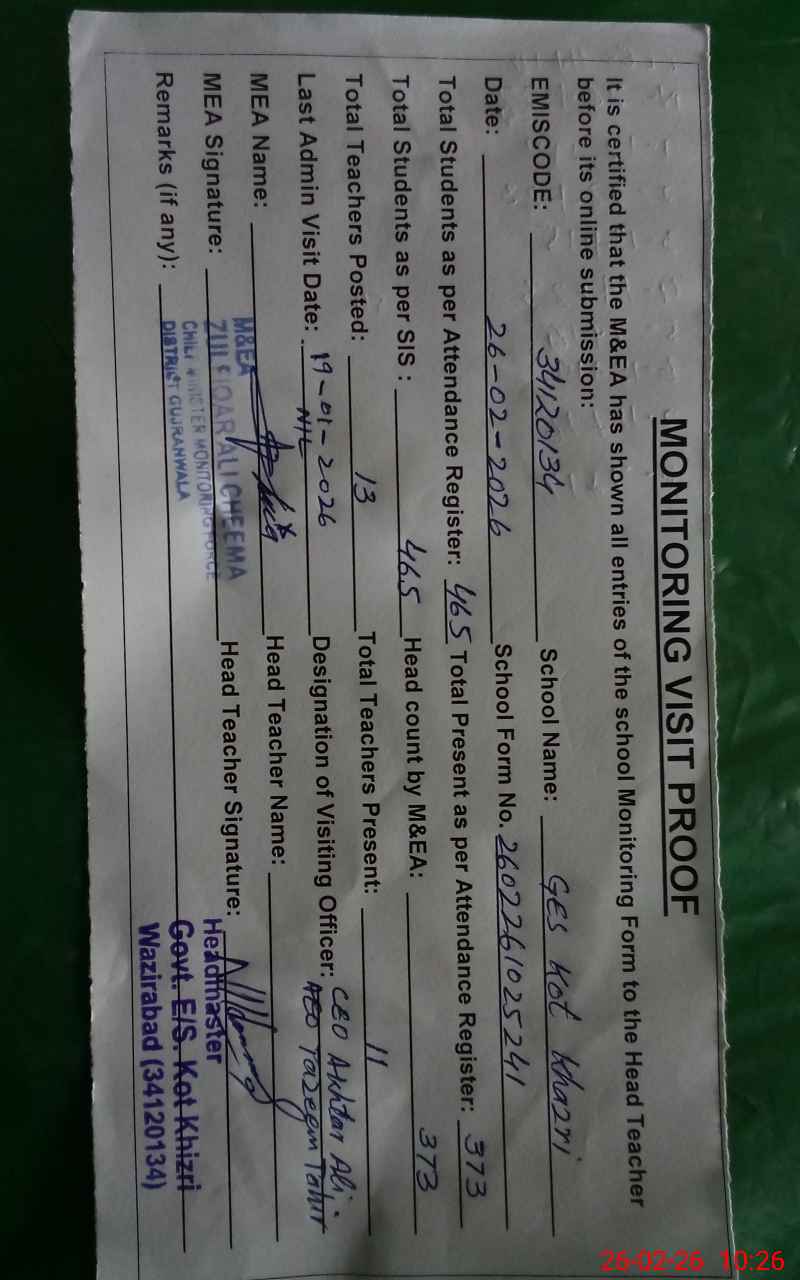 MONITORING VISIT PROOF
It is certified that the M&EA has shown all entries of the school Monitoring Form to the Head Teacher
before its online submission:
EMISCODE: 34120134 School Name: GES Kot Khazri
Date: 26-02-2026 School Form No. 2602261025241
Total Students as per Attendance Register: 465 Total Present as per Attendance Register: 373
Total Students as per SIS : 465 Head count by M&EA: 373
Total Teachers Posted: 13 Total Teachers Present: 11
Last Admin Visit Date: 19-01-2026 Designation of Visiting Officer: CEO Akhtar Ali
NIL AEO Tazeem Tahir
MEA Name: Head Teacher Name:
MEA Signature: Head Teacher Signature:
Remarks (if any):
M&EA
ZULFIQAR ALI CHEEMA
CHIEF MINISTER MONITORING FORCE
DISTRICT GUJRANWALA
Headmaster
Govt. E/S. Kot Khizri
Wazirabad (34120134)
26-02-26 10:26